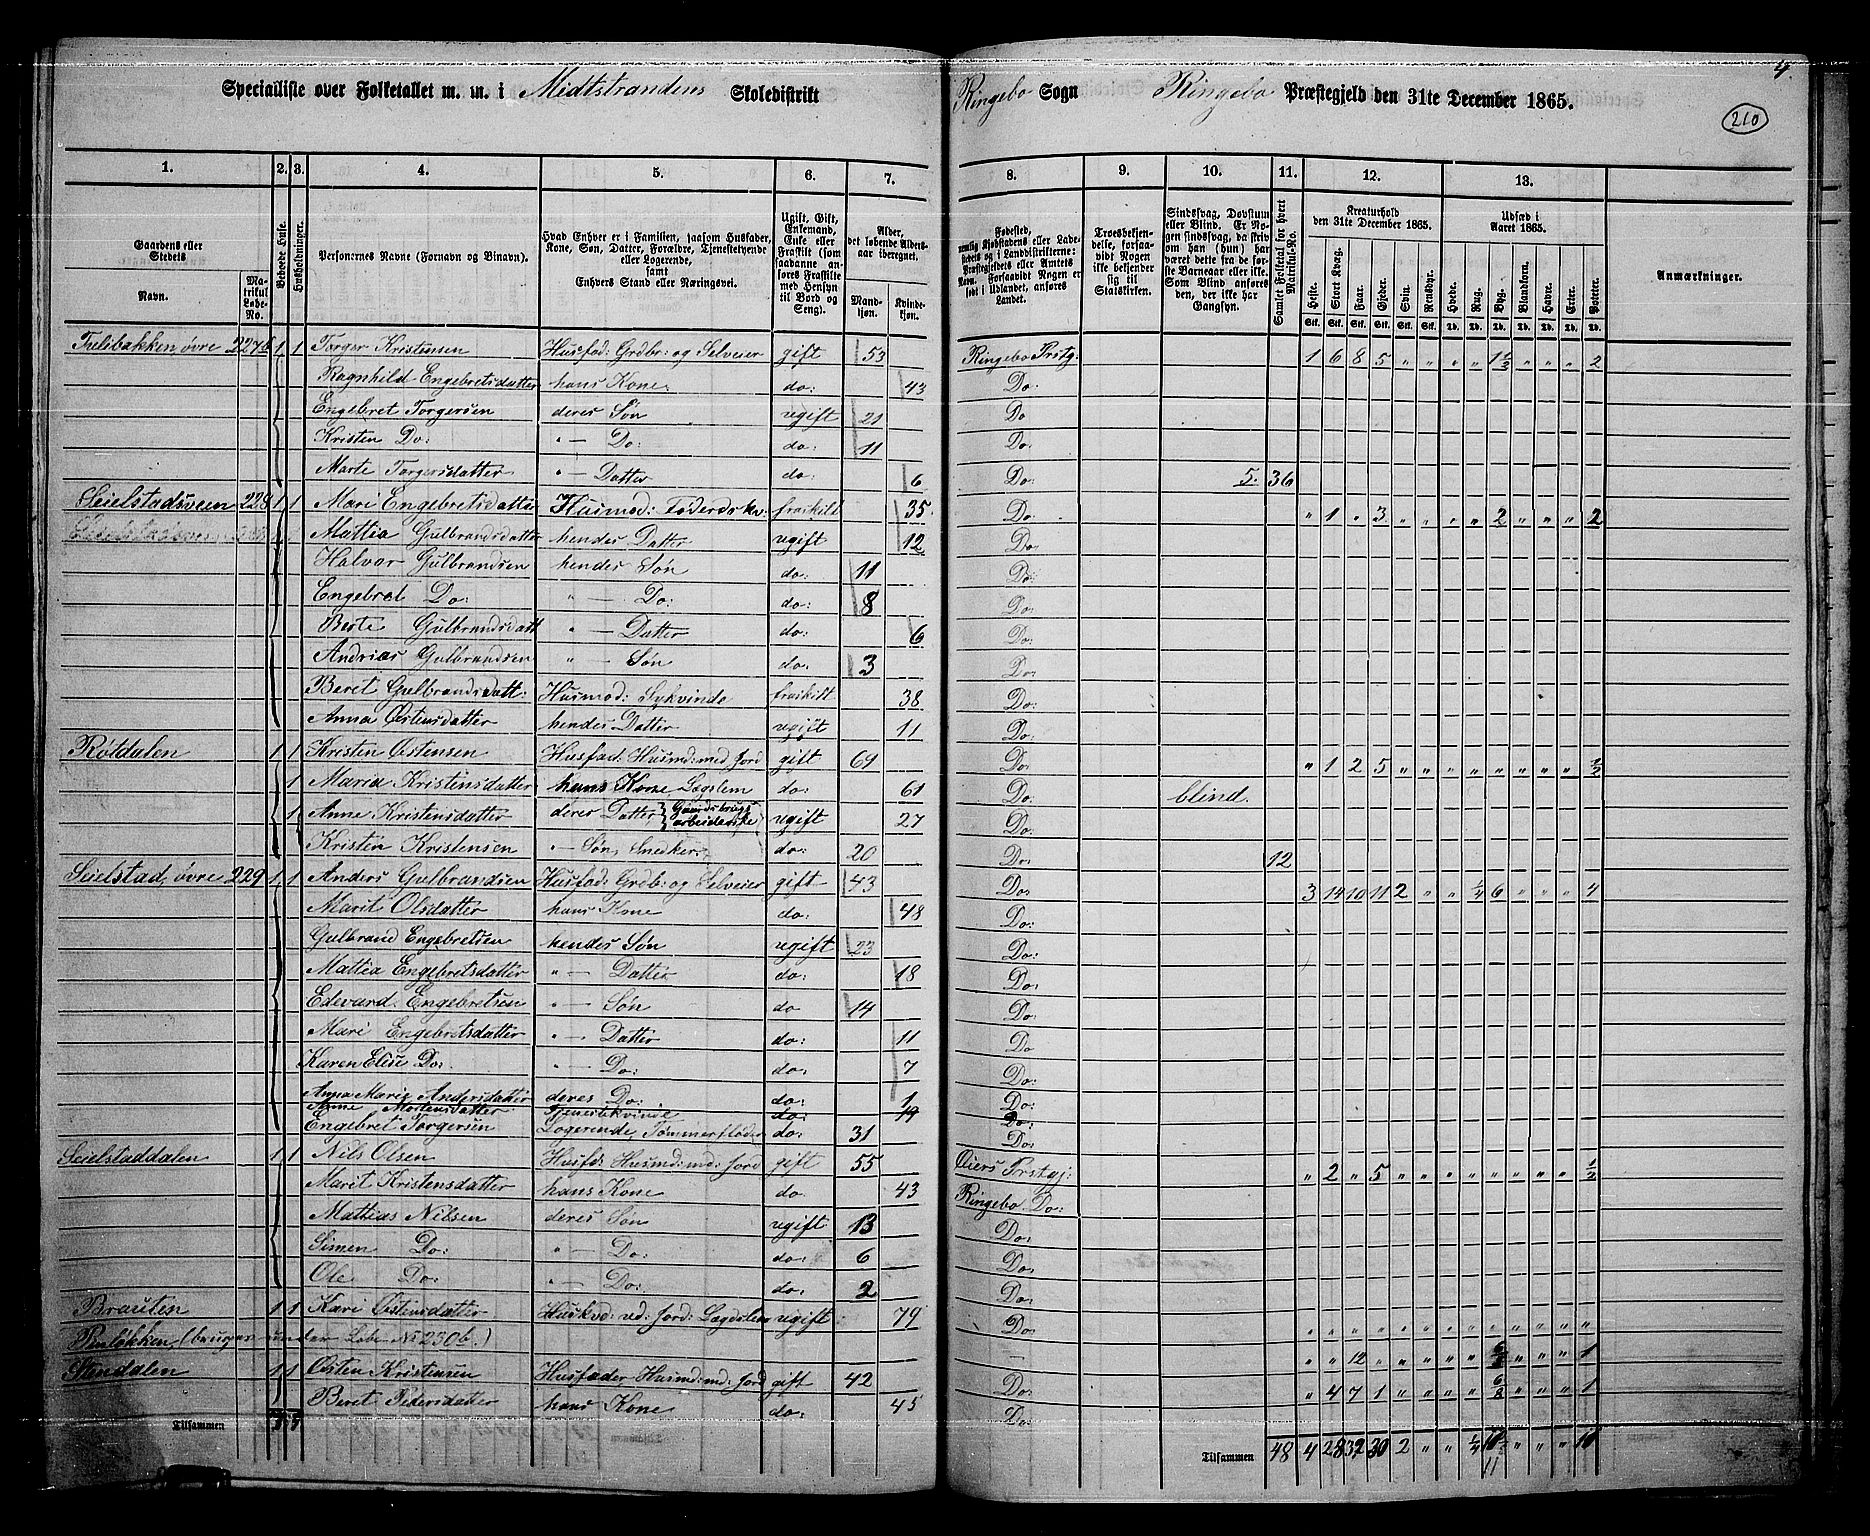 Specialliste over Folketallet m. m. i Midtstrandens Skoledistrikt Ringebo Sogn Ringebo Præstegjeld den 31te December 1865.
4
210
1. 2. 3. 4. 5. 6. 7. 8. 9. 10. 11. 12. 13.
Gaardens eller Stedets
Navn.
Matrikul Løbe-No.
Bebœde Huse.
Husholdninger.
Personernes Navne (Fornavn og Binavn).
Hvad Enhver er i Familien, saasom Husfader, Kone, Søn, Datter, Forældre, Tjenestetyende eller Logerende, samt Enhvers Stand eller Næringsvei.
Ugift, Gift, Enkemand, Enke eller Fraskilt (som saadanne anføres Fraskilte med Hensyn til Bord og Seng).
Alder, det løbende Aldersaar iberegnet.
Mandkjøn.
Kvindekjøn.
Fødested,
Troesbekjendelse, forsaavidt Nogen ikke bekjender sig til Statskirken.
Sindssvag, Døvstum eller Blind. Er Nogen sindssvag, da skriv om han (hun) har været dette fra de første Barneaar eller ikke. Som Blind anføres den, der ikke har Gangsyn.
Samlet Folketal for hvert Matrikul-No.
Kreaturhold den 31te December 1865.
Heste. Stort Kvæg. Faar. Gjeder. Svin. Rensdyr.
Udsæd i Aaret 1865.
Hvede. Rug. Byg. Blandkorn. Havre. Erter. Poteter.
Anmærkninger.
øvre 227b 1 1 Torger Kristensen Husfad: Grdbr: og Selveier gift 53 Ringebo Prstg: 1 6 8 5 " " " " 1 1/2 " " " 2
Ragnhild Engebretsdatter hans Kone do: 43 Do:
Engebret Torgersen deres Søn ugift 21 Do
Kristen Do: " — Do: do: 11 Do:
Marte Torgersdatter " — Datter do: 6 Do: 5. 36
Seielstadsveen 228 1 1 Mari Engebretsdatter Husmod: Føderdskv: fraskild 35 Do: " 1 " 3 " " " " 2 " " " 2
Mattia Gulbrandsdatter hendes Datter ugift 12 Do:
Halvor Gulbrandsen hendes Søn do: 11 Do:
Engebret Do: " — Do: do: 8 Do:
Berte Gulbrandsdatt " — Datter do: 6 Do:
Andrias Gulbrandsen " — Søn do: 3 Do:
Beret Gulbrandsdatt: Husmod: Sykvinde fraskilt 38 Do:
Anna Østensdatter hendes Datter ugift 11 Do:
Røtdalen 1 1 Kristen Østensen Husfad: Husmd: med Jord gift 69 Do: " 1 2 5 " " " " " " " " 1/2
1 Maria Kristensdatter hans Kone Lægslem do: 61 Do: blind.
1 Anne Kristensdatter deres Datter, Gaardsbrugsarbeiderske ugift 27 Do:
Kristen Kristensen " — Søn, Snedker do: 20 Do: 12
Seielstad, øvre 229 1 1 Anders Gulbrandsen Husfad: Grdb: og Selveier gift 43 Do: 3 14 10 11 2 " " 1/4 6 " " " 4
Marit Olsdatter hans Kone do: 48 Do:
Gulbrand Engebretsen hendes Søn ugift 23 Do:
Mattia Engebretsdatter " — Datter do: 18 Do:
Edevard Engebretsen " — Søn do 14 Do:
Mari Engebretsdatter " — Datter do: 11 Do
Karen Elise Do: " — Do: do: 7 Do:
Anna Marie Andersdatter deres Do: do: 1 Do:
Anne Mortensdatter Tjenestekvinde do: 19 Do:
Engebret Torgersen Logerende, Tømmerfløder do: 31 Do:
Seielstaddalen 1 1 Nils Olsen Husfd: Husmd: md: Jord gift 55 Øiers Prstgj: " 2 " 5 " " " " " " " " 1/2
Marit Kristensdatter hans Kone do. 43 Ringebo Do:
Mathias Nilsen deres Søn ugift 13 Do:
Simen Do: " — Do: do: 6 Do:
Ole Do: " — Do: do: 2 Do:
Brauten 1 1 Kari Østensdatter Huskvd: vd: Jord: Lægdslem ugift 79 Do: " " " " " " " " " " " " "
(bruges under Løbe No 250b.) — " " 12 " " " " " 6/8 " " " 1
Stendalen 1 1 Østen Kristensen Husfader Husmd: md: Jord gift 42 Do: " 4 7 1 " " " " 6/8 " " " 1
Beret Pedersdatter hans Kone do: 45 Do:
Tilsammen 7 7 Tilsammen 48 4 28 37 30 2 " " 1/4 " " " 10
11